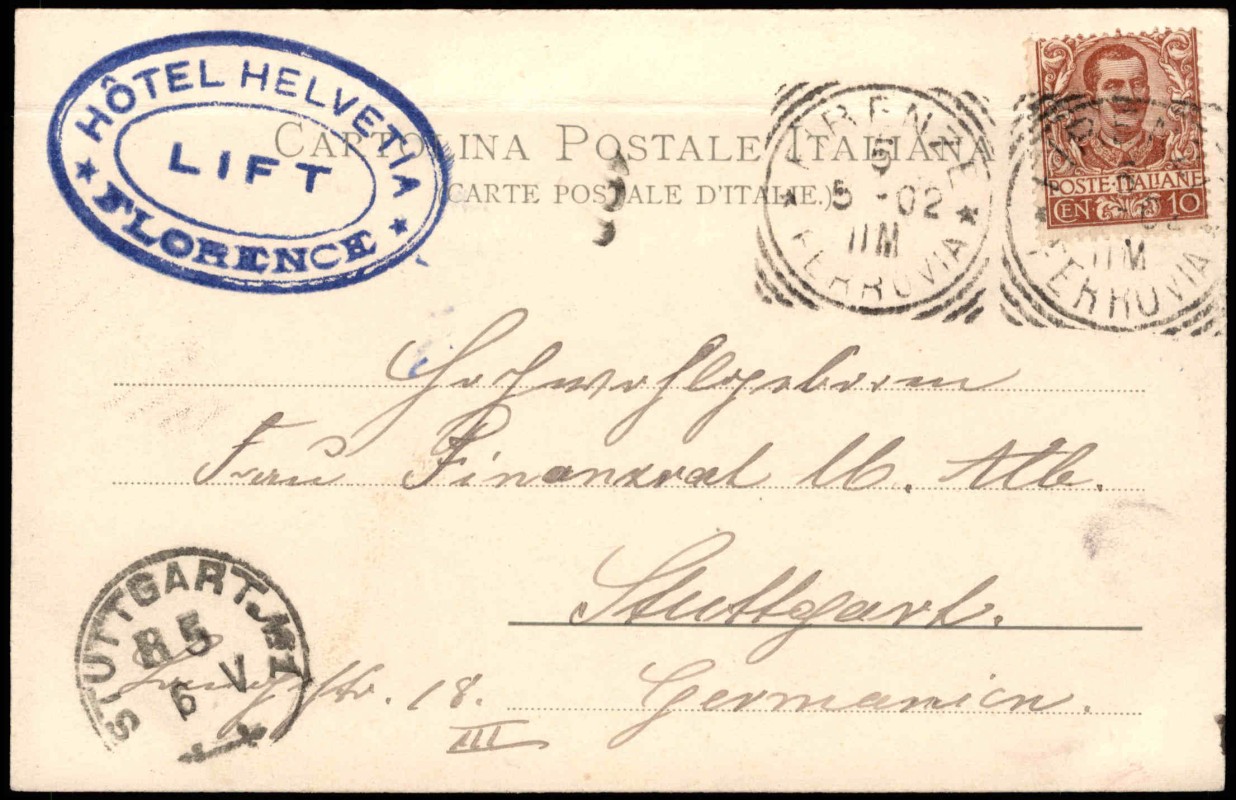 HÔTEL HELVETIA
LIFT
FLORENCE
CARTOLINA POSTALE ITALIANA
(CARTE POSTALE D'ITALIE.)
FIRENZE
5
5 - 02
11M
FERROVIA
POSTE·ITALIANE
CEN. 10
11M
FERROVIA
Hochwohlgeboren
Frau Finanzrat M.
Stuttgart.
STUTTGART. № 1
6 V
str. 18.
Germanien.
III